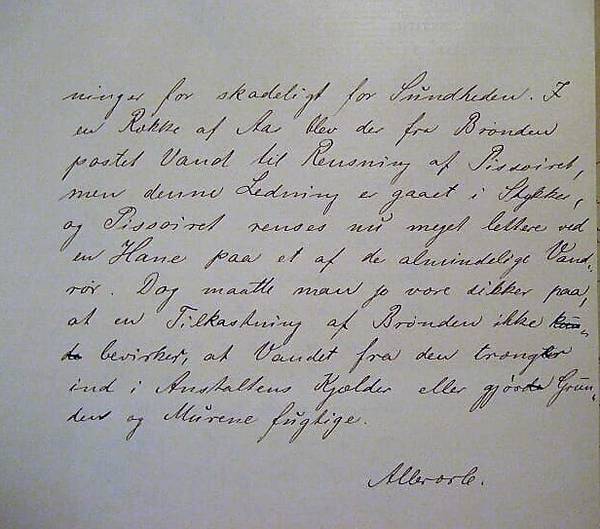 ninger for skadeligt for Sundheden. I
en Række af Aar blev der fra Brønden
postet Vand til Rensning af Pissoiret,
men denne Ledning er gaaet i Stykker,
og Pissoiret renses nu meget lettere ved
en Hane paa et af de almindelige Vand-
rør. Dog maatte man jo være sikker paa,
at en Tilkastning af Brønden ikke kun-
de bevirker, at Vandet fra den trænger
ind i Anstaltens Kjælder eller gjør Grun-
den og Murene fugtige.
Allerærb.